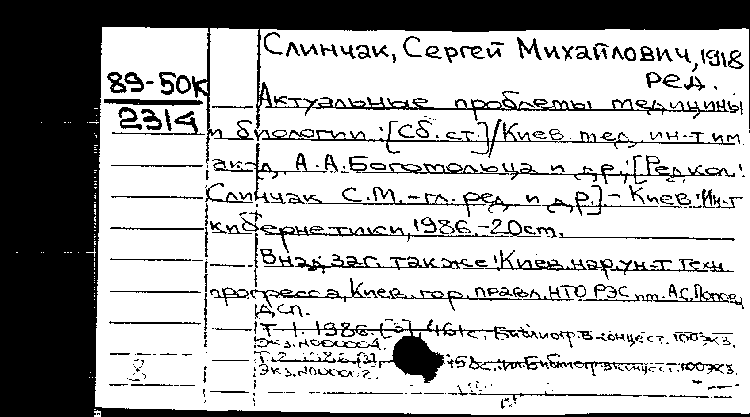 Слинчак, Сергей Михайлович, 1918
ред.
89-50К
2314
Актуальные проблемы медицины
и биологии: [Сб. ст.]/Киев мед. ин-т им
акад. А.А. Богомольца и др.; [Редкол.:
Слинчак С.М. - гл. ред и др.] - Киев: Ин-т
кибернетики, 1986. - 20 см.
В надзаг. также: Киев. нар. ун-т техн
прогресса, Киев. гор. правл. НТО РЭС им. А.С. Попова
ДСП.
Т. 1. 1986. [3], 461 с. Библиогр. в конце ст. 100 экз.
Экз. N000004.
Т. 2. 1986. [3], 458 с., ил. Библиогр. в конце ст. 100 экз.
Экз. N
8